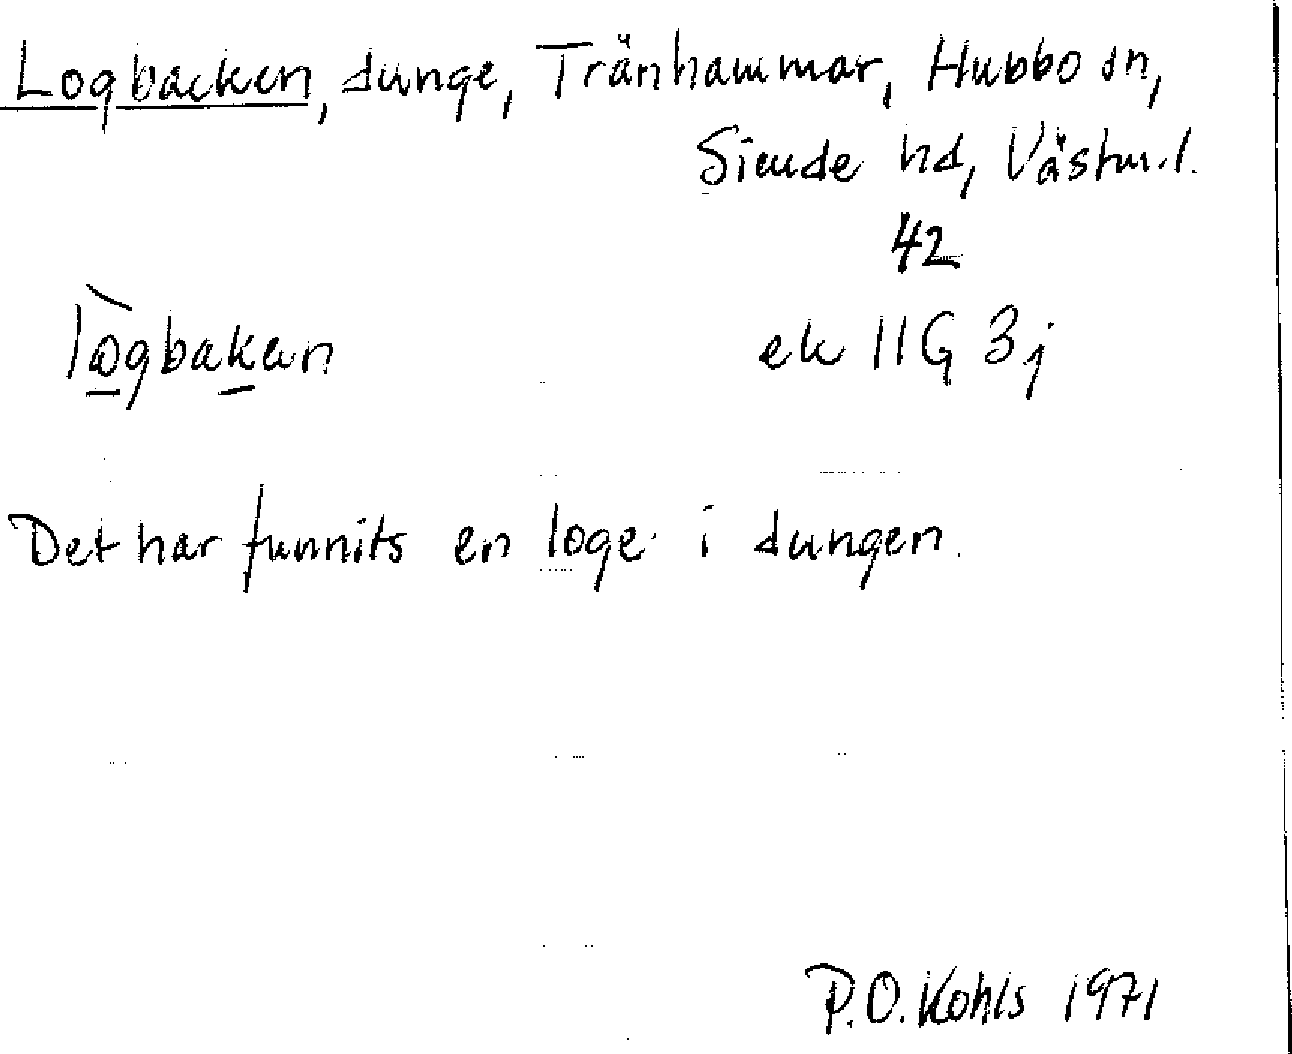 Logbacken, dunge, Tränhammar, Hubbo sn,
Siende hd, Västm.l.
42
lògbakan
ek 11G 3j
Det har funnits en loge i dungen.
P.O. Kohls 1971